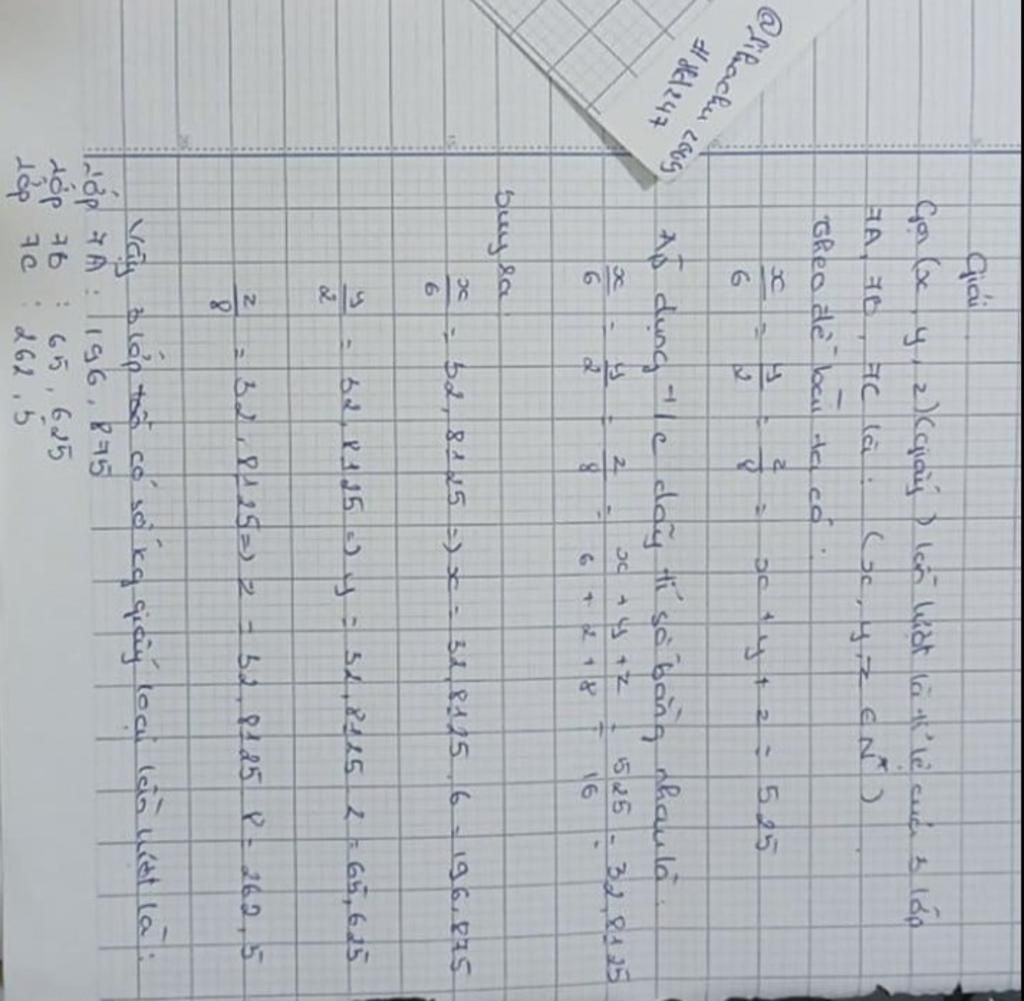 Giải
Gọi (x, y, z) (giấy) lần lượt là tỉ lệ của 3 lớp
7A, 7B, 7C là: (x, y, z ∈ N*)
Theo đề bài ta có:
x/6 = y/2 = z/8 = x + y + z = 525
Áp dụng t/c dãy tỉ số bằng nhau là.
x/6 = y/2 = z/8 = x + y + z / 6 + 2 + 8 = 525 / 16 = 32,8125
Suy ra
x/6 = 32,8125 => x = 32,8125 . 6 = 196,875
y/2 = 32,8125 => y = 32,8125 . 2 = 65,625
z/8 = 32,8125 => z = 32,8125 . 8 = 262,5
Vậy 3 lớp có số kg giấy loại lần lượt là:
Lớp 7A: 196,875
Lớp 7B: 65,625
Lớp 7C: 262,5